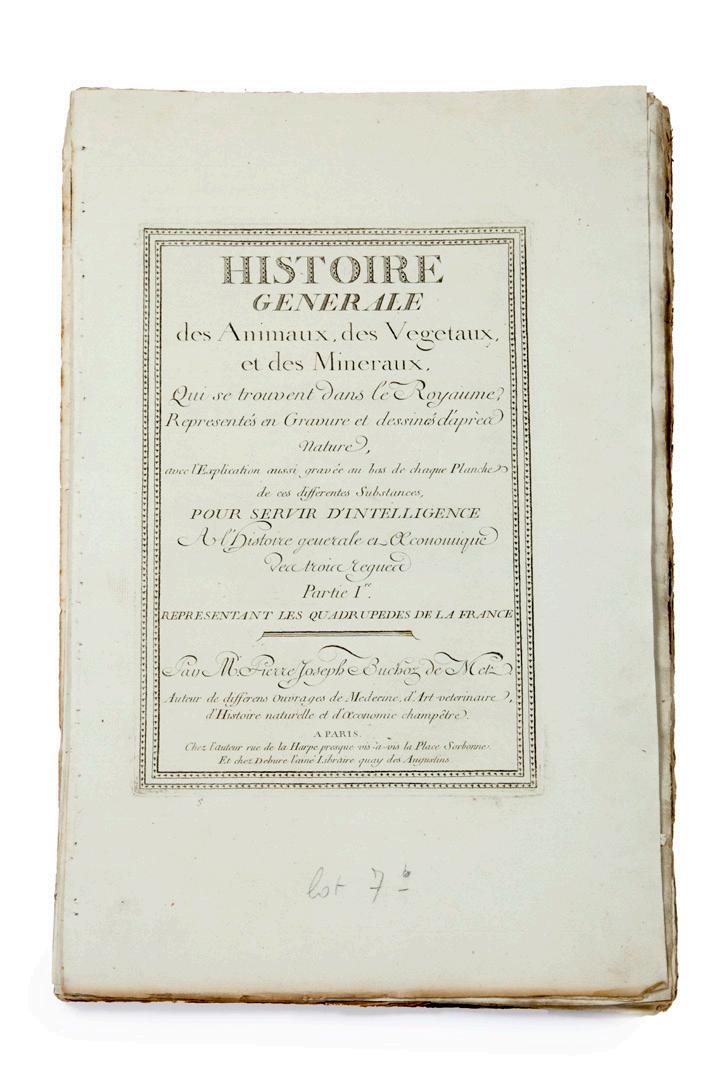 HISTOIRE
GENERALE
des Animaux, des Vegetaux,
et des Mineraux,
Qui se trouvent dans le Royaume,
Representés en Gravure et dessinés d'après
Nature,
avec l'Explication aussi gravée au bas de chaque Planche
de ces differentes Substances,
POUR SERVIR D'INTELLIGENCE
A l'Histoire generale et Œconomique
des trois regnes
Partie I.re
REPRESENTANT LES QUADRUPEDES DE LA FRANCE
Par Mr. Pierre Joseph Buchoz de Metz
Auteur de differens Ouvrages de Medecine, d'Art veterinaire,
d'Histoire naturelle et d'Œconomie champêtre.
A PARIS.
Chez l'auteur rue de la Harpe presque vis-à-vis la Place Sorbonne.
Et chez Debure l'ainé Libraire quay des Augustins
lot 7 b